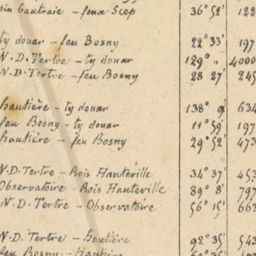 feux Scep 36° 52' 122
ty douar – feu Bosny 22° 33' 197
N.D. Tertre – ty douar 129° 4000
N.D. Tertre – feu Bosny 28° 27' 245
hautière – ty douar 138° 9' 634
feu Bosny – ty douar 11° 59' 197
hautière – feu Bosny 29° 52' 473
N.D. Tertre – Bois Hauteville 34° 37' 453
Observatoire – Bois Hauteville 89° 8' 797
N.D. Tertre – Observatoire 56° 15' 663
N.D. Tertre – 92° 35' 543
feu Bosny –